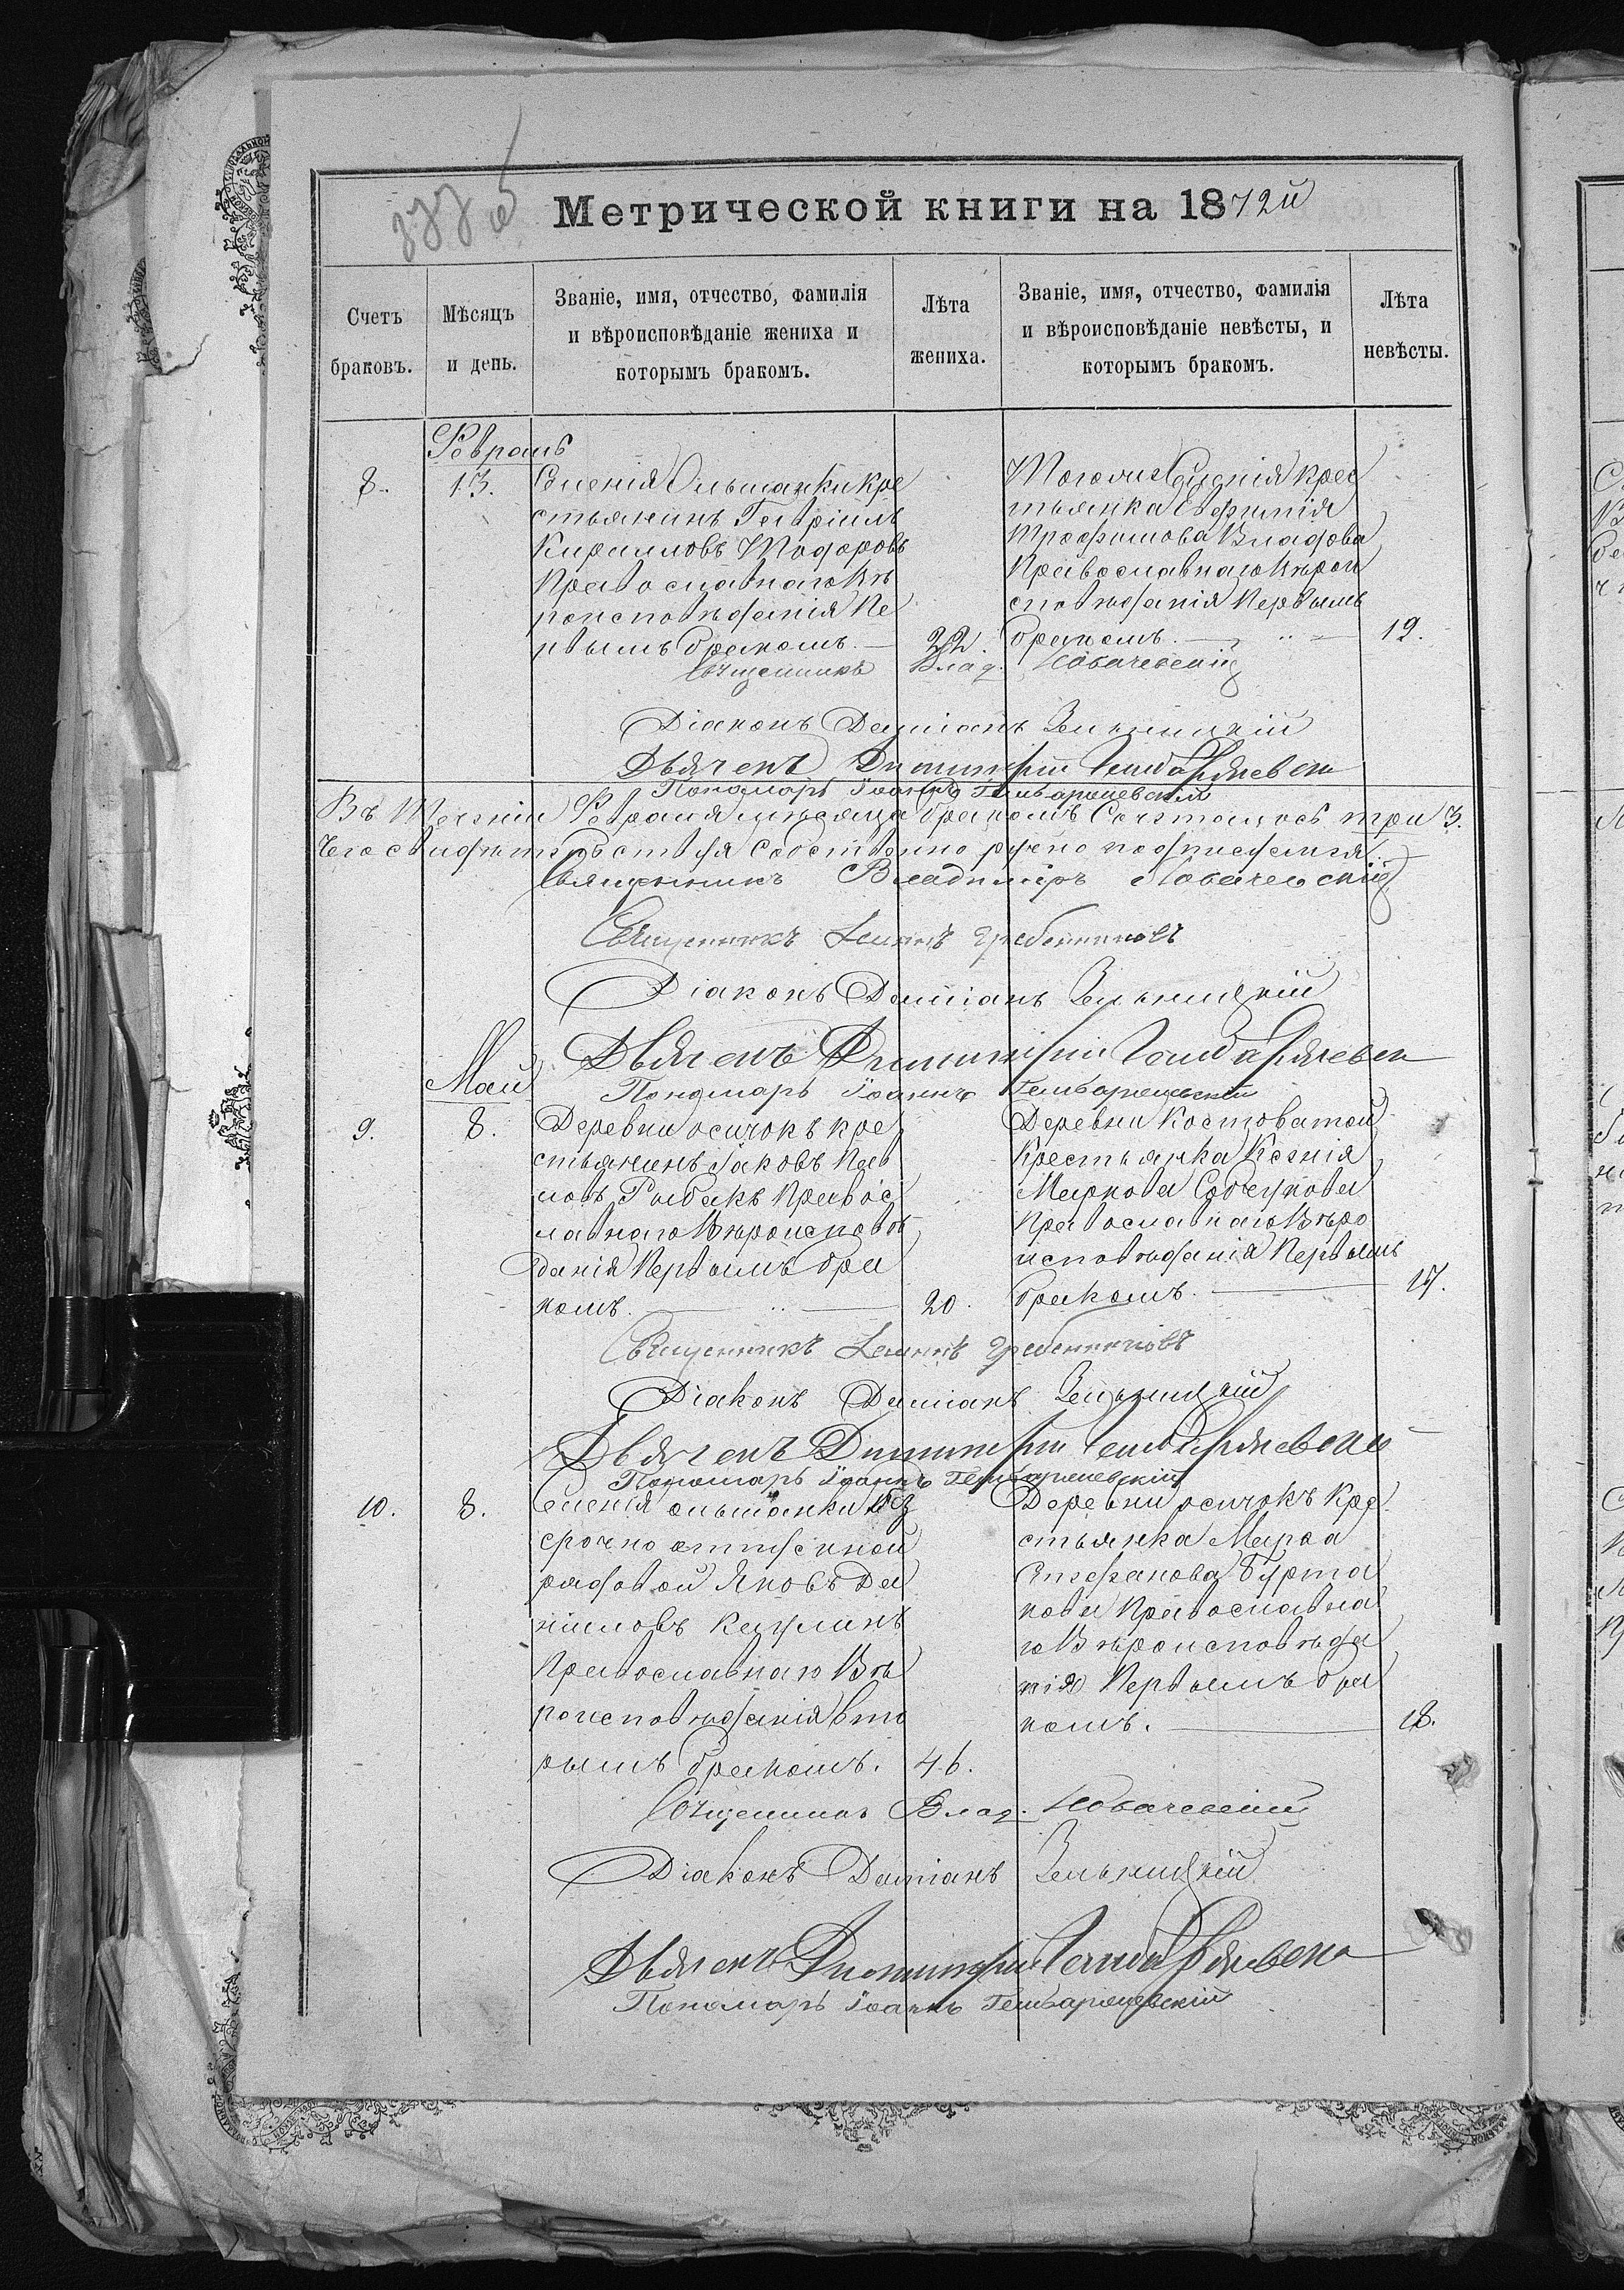 377 об
Метрической книги на 1872й
Счетъ браковъ.
Мѣсяцъ и день.
Званіе, имя, отчество, фамилія и вѣроисповѣданіе жениха и которымъ бракомъ.
Лѣта жениха.
Званіе, имя, отчество, фамилія и вѣроисповѣданіе невѣсты, и которымъ бракомъ.
Лѣта невѣсты.
Февраль
8. 13.
Селенія Ольшанки кре
стьянинъ Гавріилъ
Кирилловъ Тодоровъ
Православнаго Вѣ
роисповѣданія Пе
рвымъ бракомъ. 22.
Тогоже Селенія крес
тьянка Евфимія
Трофимова Владова
Православнаго Вѣрои
сповѣданія Первымъ
бракомъ. 19.
Священникъ Влад. Лобачевскій
Діаконъ Даміанъ Зельницкій
Дьячекъ Димитрій
Пономарь Іоаннъ
Въ Теченіи Февраля мѣсяца бракомъ Сочеталось три 3.
Чего свидѣтельствуя Собственно ручно подписуемся
Священникъ Владиміръ Лобачевскій
Священникъ Іоаннъ Гребенниковъ
Діаконъ Даміанъ Зельницкій
Дьячекъ Димитрій
Пономарь Іоаннъ
Май
9. 8.
Деревни осичокъ кре
стьянинъ Іаковъ Пав
ловъ Рыбакъ Правос
лавнаго Вѣроисповѣ
данія Первымъ бра
комъ. 20.
Деревни Костоватой
Крестьянка Ксенія
Маркова Собчукова
Православнаго Вѣро
исповѣданія Первымъ
бракомъ. 17.
Священникъ Іоаннъ Гребенниковъ
Діаконъ Даміанъ Зельницкій
Дьячекъ Димитрій
Пономарь Іоаннъ
10. 8.
Селенія ольшанки без
срочно отпускной
рядовой Яковъ Да
ніиловъ
Православнаго Вѣ
роисповѣданія вто
рымъ бракомъ. 46.
Деревни осичокъ Кре
стьянка Марфа
Стефанова Бурта
кова Православна
го Вѣроисповѣда
нія Первымъ бра
комъ. 18.
Священникъ Влад. Лобачевскій
Діаконъ Даміанъ Зельницкій
Дьячекъ Димитрій
Пономарь Іоаннъ